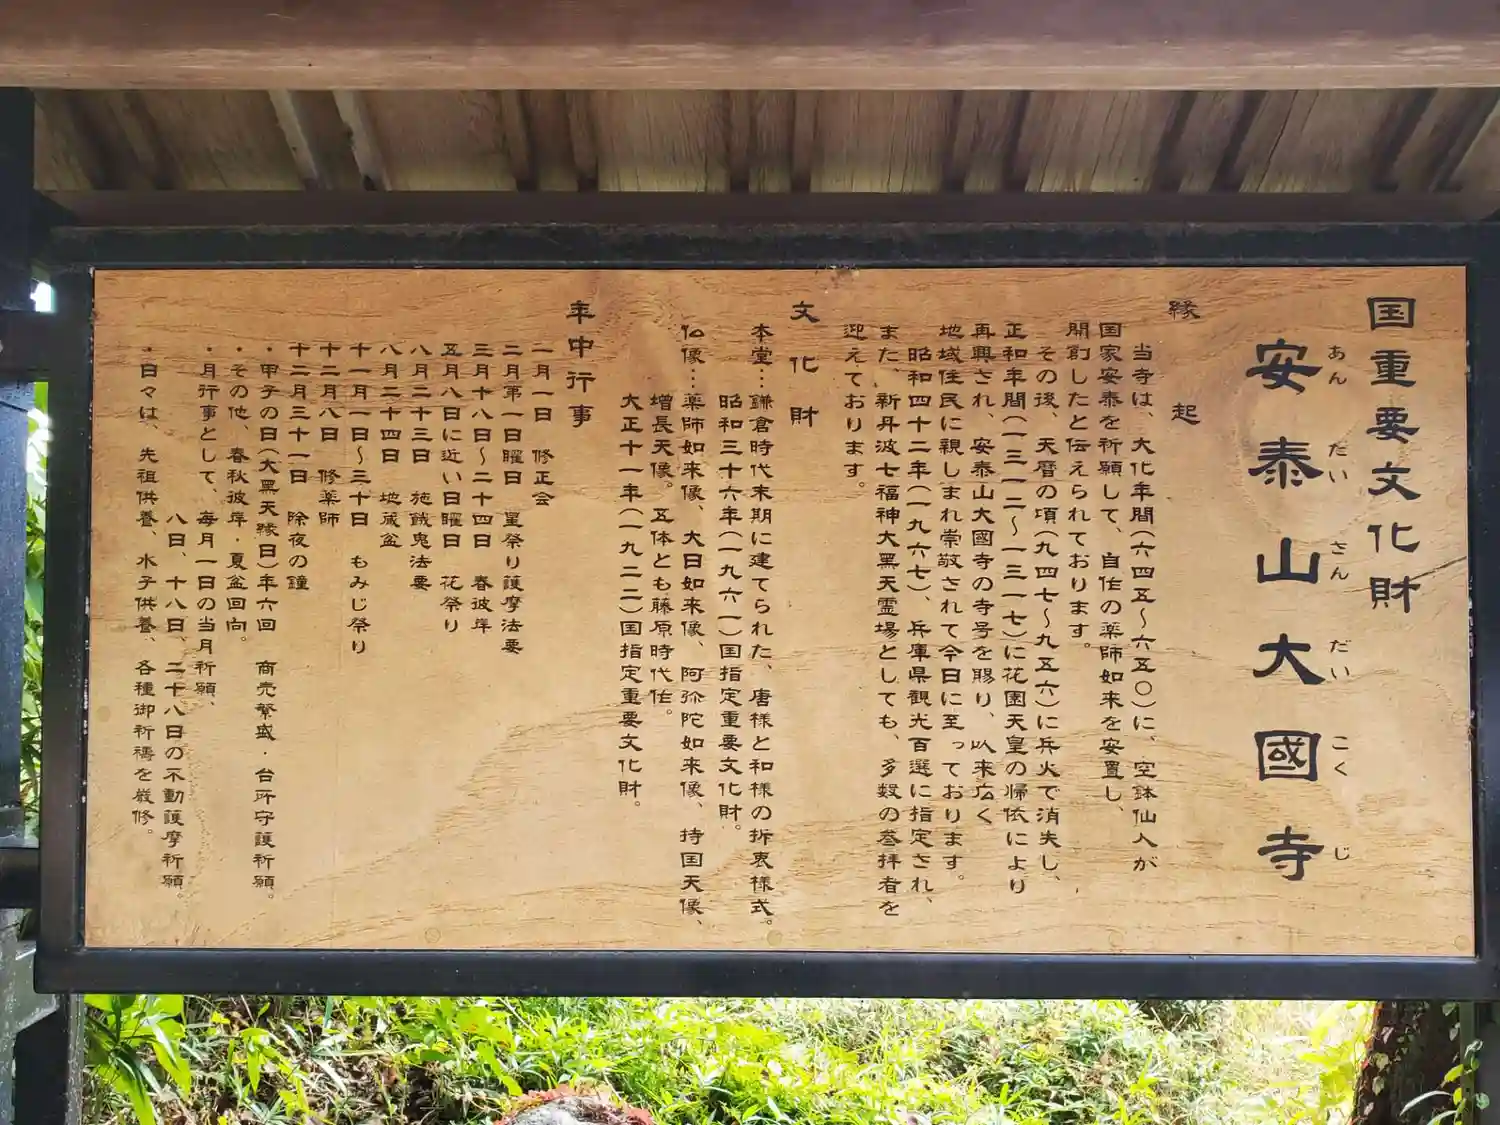 国重要文化財
安泰山大國寺
あんだいさんだいこくじ
縁起
当寺は、大化年間(六四五〜六五〇)に、空鉢仙人が
国家安泰を祈願して、自作の薬師如来を安置し、
開創したと伝えられております。
その後、天暦の頃(九四七〜九五六)に兵火で消失し、
正和年間(一三一二〜一三一七)に花園天皇の帰依により
再興され、安泰山大國寺の寺号を賜り、以来広く
地域住民に親しまれ崇敬されて今日に至っております。
昭和四十二年(一九六七)、兵庫県観光百選に指定され、
また、新丹波七福神大黑天霊場としても、多数の参拝者を
迎えております。
文化財
本堂…鎌倉時代末期に建てられた、唐様と和様の折衷様式。
昭和三十六年(一九六一)国指定重要文化財。
仏像…薬師如来像、大日如来像、阿弥陀如来像、持国天像、
増長天像。五体とも藤原時代作。
大正十一年(一九二二)国指定重要文化財。
年中行事
一月一日 修正会
二月第一日曜日 星祭り護摩法要
三月十八日〜二十四日 春彼岸
五月八日に近い日曜日 花祭り
八月二十三日 施餓鬼法要
八月二十四日 地蔵盆
十一月一日〜三十日 もみじ祭り
十二月八日 修薬師
十二月三十一日 除夜の鐘
・甲子の日(大黑天縁日)年六回 商売繁盛・台所守護祈願。
・その他、春秋彼岸・夏盆回向。
・月行事として、毎月一日の当月祈願、
八日、十八日、二十八日の不動護摩祈願。
・日々は、先祖供養、水子供養、各種御祈禱を厳修。